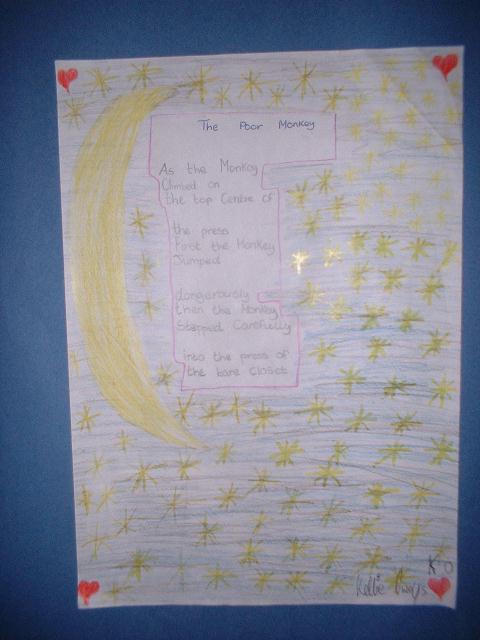 The Poor Monkey
As the Monkey
Climbed on
the top Centre of
the press
First the Monkey
Jumped
dangerously
then the Monkey
Stepped Carefully
into the press of
the bare closet
Kellie